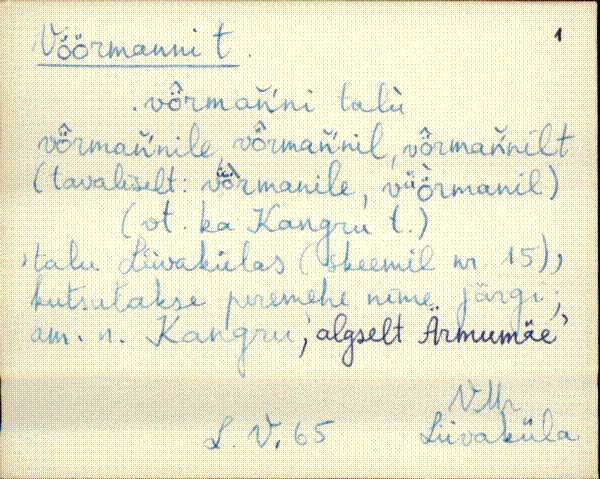 Vöörmanni t. 1
.vȫrmańńi talù
vȫrmańńile, vȫrmańńil, vȫrmańńilt
(tavaliselt: vüörmanile, vüörmanil)
(vt. ka Kangru t.)
'talu Liivakülas (skeemil nr. 15),
kutsutakse peremehe nime järgi;
am. n. Kangru, algselt Ärmumäe'
VMr
L. V. 65 Liivaküla